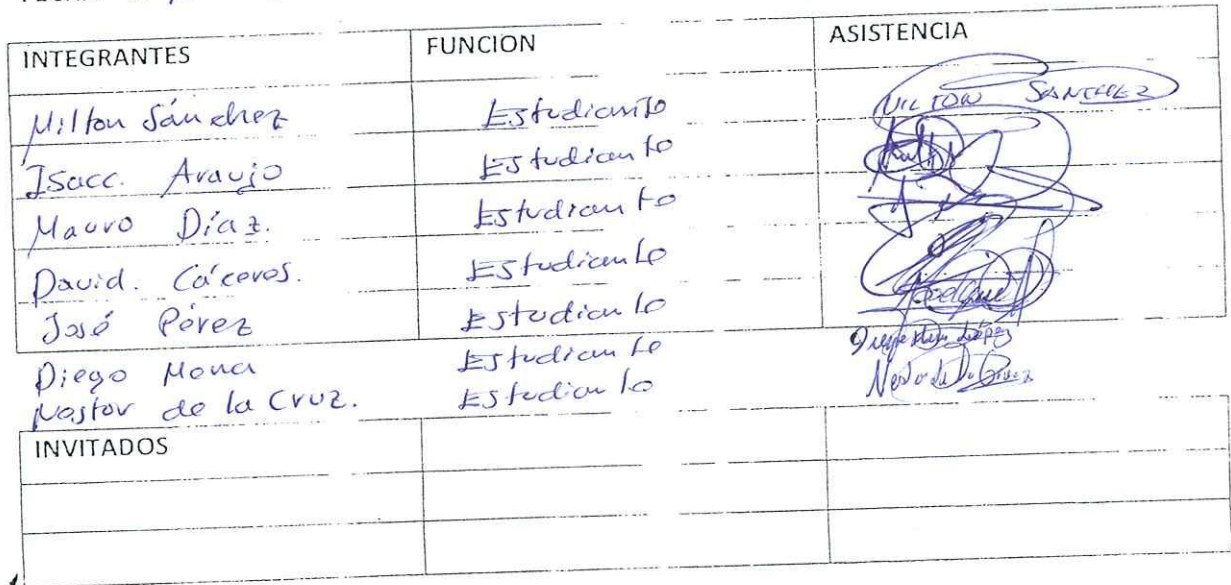 INTEGRANTES FUNCION ASISTENCIA
Milton Sánchez Estudiante MILTON SANCHEZ
Isacc. Araujo Estudiante
Mauro Díaz. Estudiante
David. Cáceres. Estudiante
José Pérez Estudiante
Diego Mena Estudiante
Nestor de la Cruz. Estudiante
INVITADOS